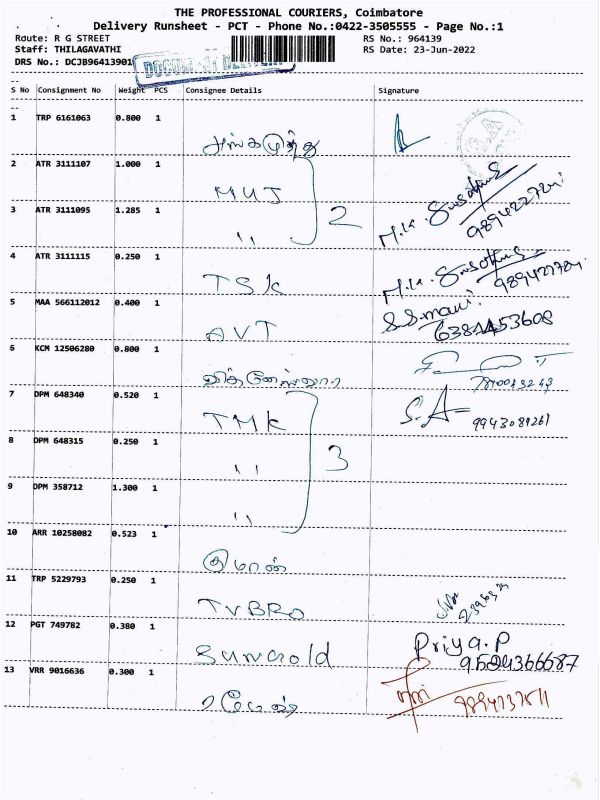 THE PROFESSIONAL COURIERS, Coimbatore
Delivery Runsheet - PCT - Phone No.:0422-3505555 - Page No.:1
Route: R G STREET
RS No.: 964139
Staff: THILAGAVATHI
RS Date: 23-Jun-2022
DRS No.: DCJB96413901
S No Consignment No Weight PCS Consignee Details Signature
1 TRP 6161063 0.800 1
2 ATR 3111107 1.000 1
MUJ
3 ATR 3111095 1.285 1
2
,,
4 ATR 3111115 0.250 1
TSK
5 MAA 566112012 0.400 1
S.S.mani.
AVT
6384453608
6 KCM 12506280 0.800 1
7 DPM 648340 0.520 1
TMK
S.A
9943089261
8 DPM 648315 0.250 1
3
,,
9 DPM 358712 1.300 1
,,
10 ARR 10258082 0.523 1
11 TRP 5229793 0.250 1
TVBRO
12 PGT 749782 0.380 1
Priya.P
Sungold
9524366687
13 VRR 9016636 0.300 1
ரமேஷ்